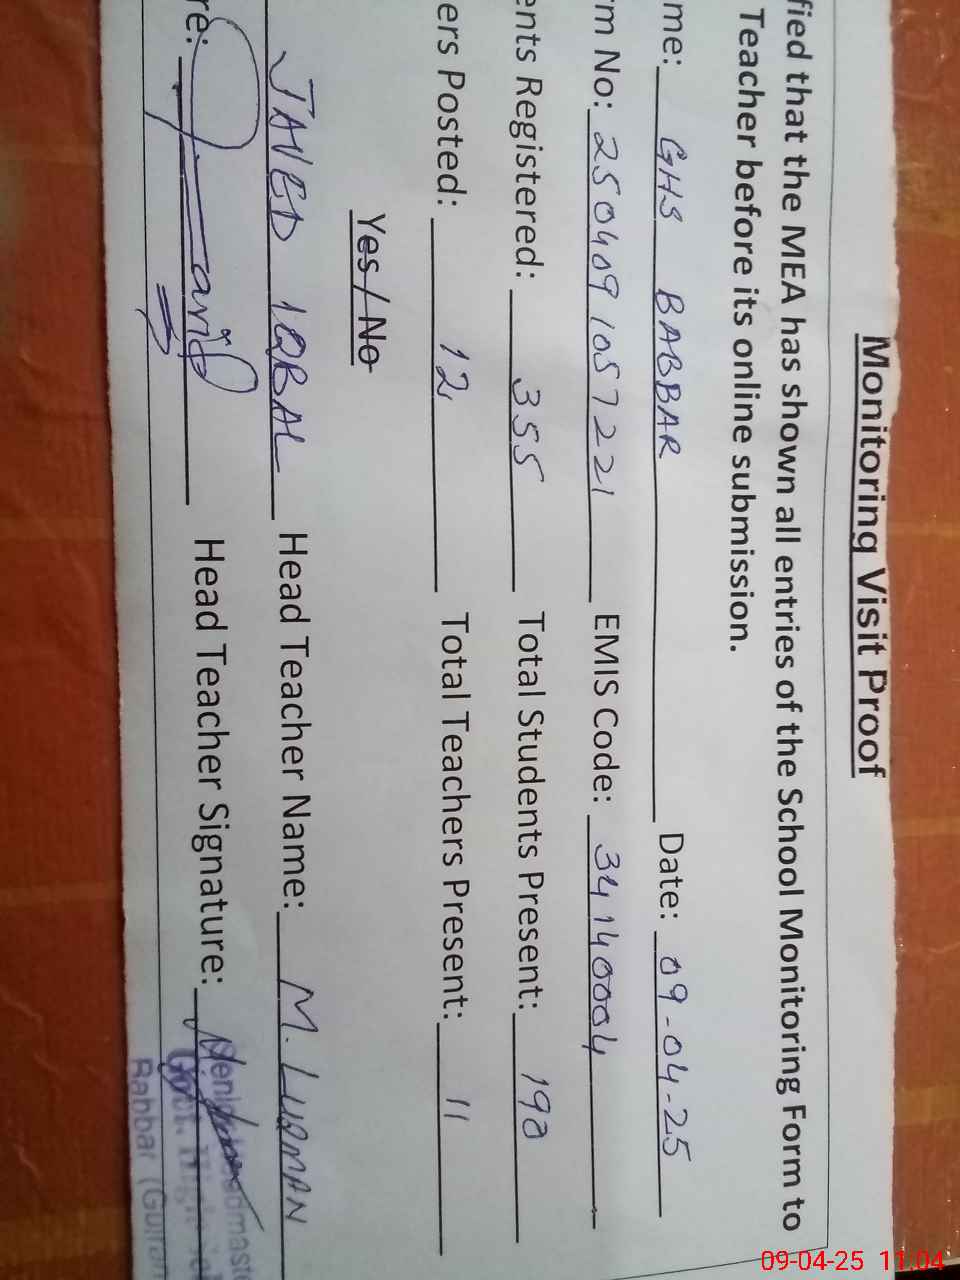 Monitoring Visit Proof
fied that the MEA has shown all entries of the School Monitoring Form to
Teacher before its online submission.
me: GHS BABBAR Date: 09-04-25
rm No: 250409 1057221 EMIS Code: 34140004
ents Registered: 355 Total Students Present: 190
ers Posted: 12 Total Teachers Present: 11
Yes / No
JAVED IQBAL Head Teacher Name: M. LUQMAN
re: Javid Head Teacher Signature:
Babbar (Gujran
09-04-25 11:04